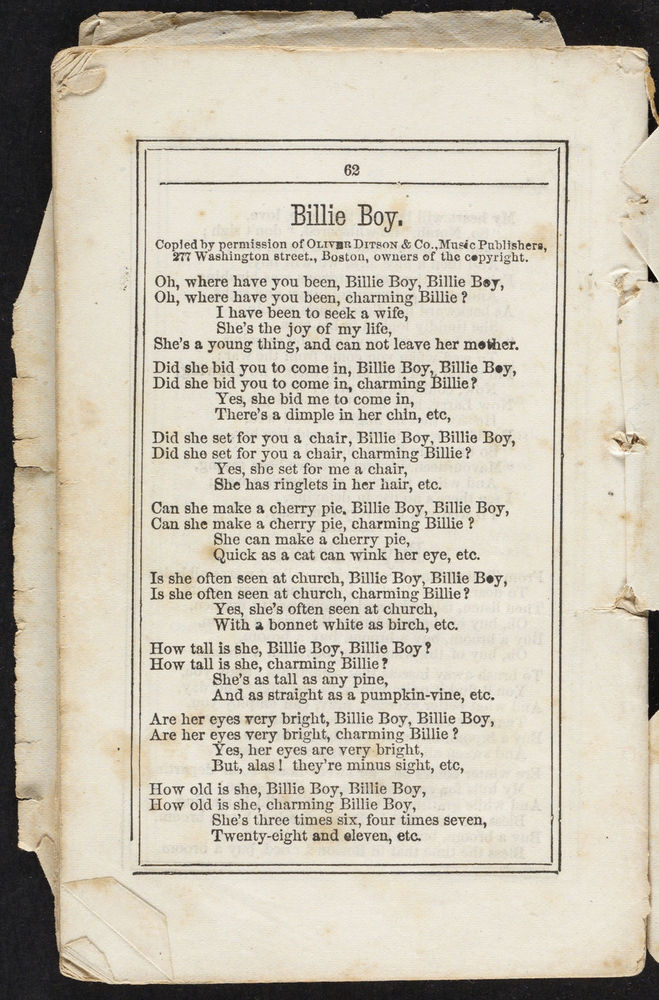 62
Billie Boy.
Copied by permission of OLIVER DITSON & Co., Music Publishers,
277 Washington street., Boston, owners of the copyright.
Oh, where have you been, Billie Boy, Billie Boy,
Oh, where have you been, charming Billie?
I have been to seek a wife,
She's the joy of my life,
She's a young thing, and can not leave her mother.
Did she bid you to come in, Billie Boy, Billie Boy,
Did she bid you to come in, charming Billie?
Yes, she bid me to come in,
There's a dimple in her chin, etc,
Did she set for you a chair, Billie Boy, Billie Boy,
Did she set for you a chair, charming Billie?
Yes, she set for me a chair,
She has ringlets in her hair, etc.
Can she make a cherry pie. Billie Boy, Billie Boy,
Can she make a cherry pie, charming Billie?
She can make a cherry pie,
Quick as a cat can wink her eye, etc.
Is she often seen at church, Billie Boy, Billie Boy,
Is she often seen at church, charming Billie?
Yes, she's often seen at church,
With a bonnet white as birch, etc.
How tall is she, Billie Boy, Billie Boy?
How tall is she, charming Billie?
She's as tall as any pine,
And as straight as a pumpkin-vine, etc.
Are her eyes very bright, Billie Boy, Billie Boy,
Are her eyes very bright, charming Billie?
Yes, her eyes are very bright,
But, alas! they're minus sight, etc,
How old is she, Billie Boy, Billie Boy,
How old is she, charming Billie Boy,
She's three times six, four times seven,
Twenty-eight and eleven, etc.